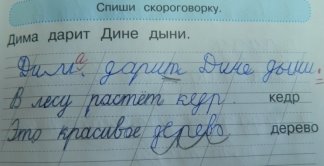 Спиши скороговорку.
Дима дарит Дине дыни.
Дима дарит Дине дыни.
В лесу растёт кедр. кедр
Это красивое дерево дерево